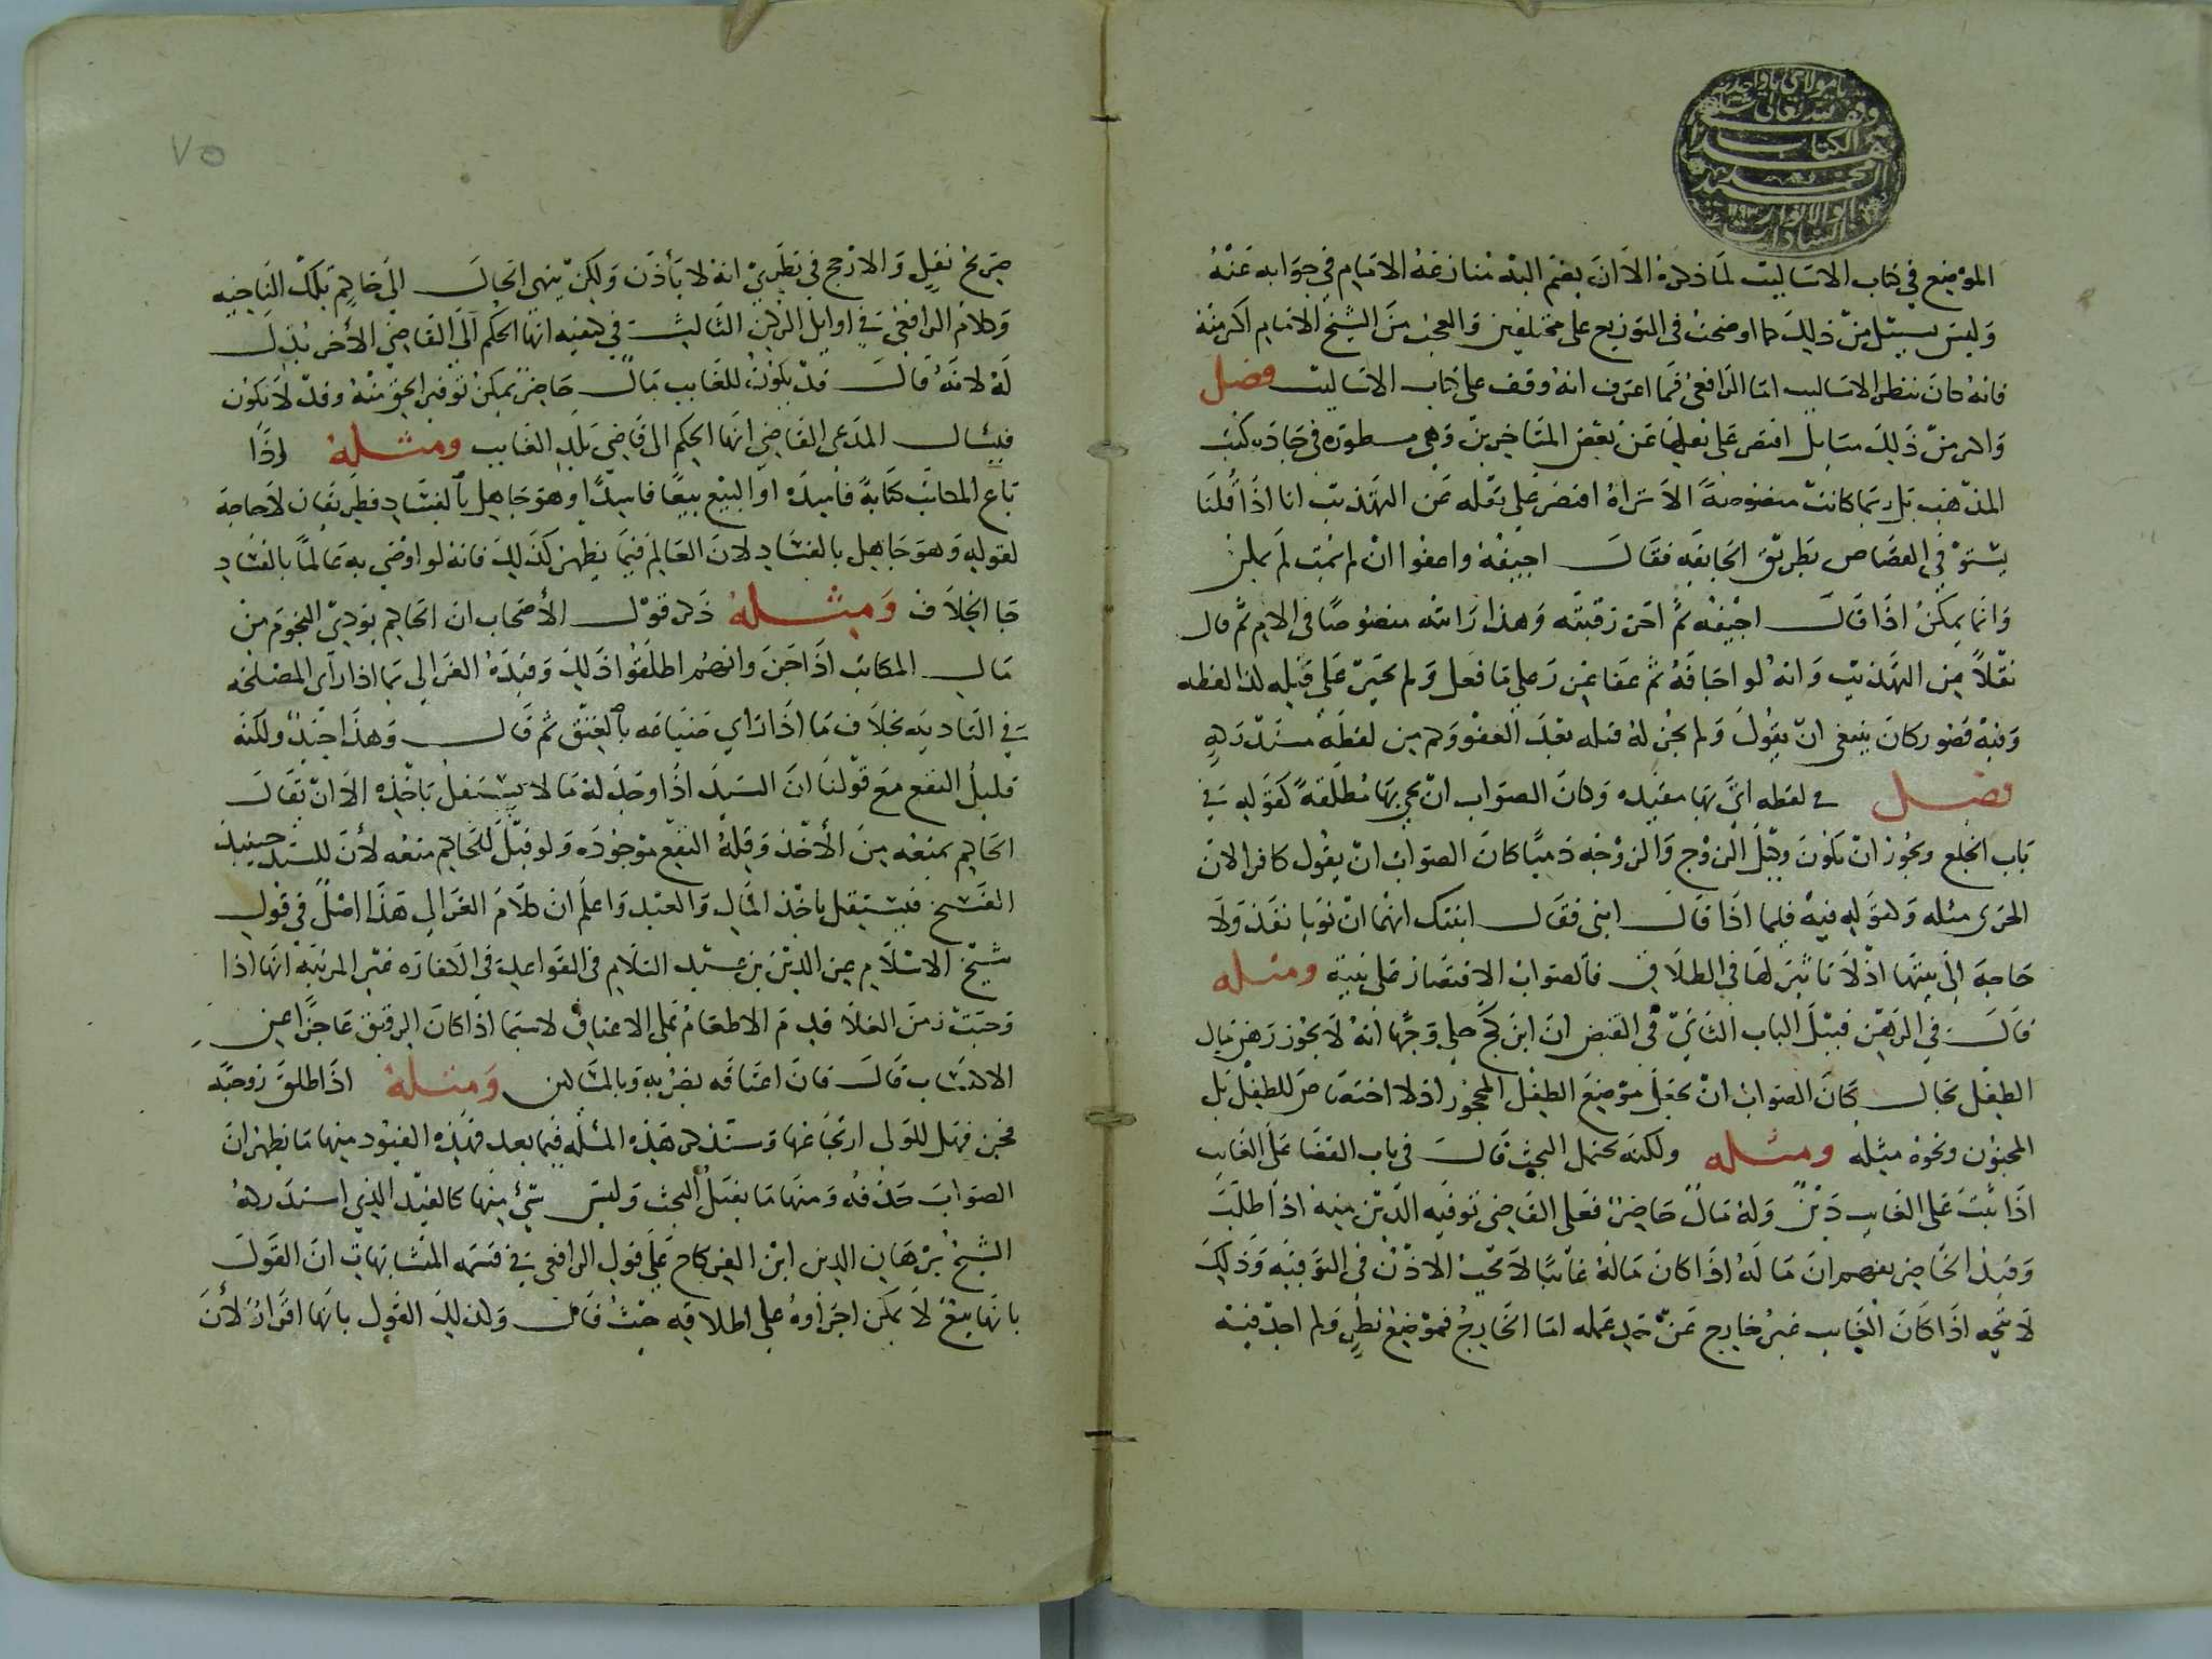 الموضع في كتاب الاساليب لما ذكره الا ان يضم اليه منازعة الامام في جوابه عنه
وليس سبيل من ذلك ما اوضحت في التوزيع على مختلفين والعجب من الشيخ الامام اكثر منه
فانه كان ينظر الاساليب اما الرافعي فما اعترف انه وقف على كتاب الاساليب فصل
واكثر من ذلك مسايل اقتصر على نقلها عن بعض المتاخرين وهي مسطورة في جادة كتب
المذهب بل ربما كانت منصوصة الا تراه اقتصر على نقله عن التهذيب انا اذا قلنا
يستوفى القصاص بطريق الجايفه فقال اجيفه واعفوا ان لم يمت لم يمكن
وانما يمكن اذا قال اجيفه ثم احز رقبته وهذا رايته منصوصا في الام ثم قال
نقلا من التهذيب وانه لو اجافه ثم عفا عزر على ما فعل ولم يجبر على قتله لذا لفظه
وفيه قصور كان ينبغي ان يقول ولم يجز له قتله بعد العفو وكم من لفظه مستدركه
فصل في لفظه اتى بها مقيده وكان الصواب ان يجي بها مطلقة كقوله في
باب الخلع ويجوز ان يكون وكيل الزوج والزوجه ذميا كان الصواب ان يقول كافرا لان
الحربي مثله وكقوله فيه فلما اذا قال ابني فقال ابنتك انهما ان نويا نفذ ولا
حاجة الى نيتها اذ لا تاثير لها في الطلاق فالصواب الاقتصار على نيته ومثله
قال في الرهن قبيل الباب الثاني في القبض ان ابن كج حكى وجها انه لا يجوز رهن مال
الطفل بحال كان الصواب ان يجعل موضع الطفل المحجور اذ لا اختصاص للطفل بل
المجنون ونحوه مثله ومثله ولكنه يحتمل البحث قال في باب القضا على الغايب
اذا ثبت على الغايب دين وله مال حاضر فعلى القاضي توفيه الدين منه اذا طلبت
وقيد الحاضر يفهم ان ماله اذا كان ماله غائبا لا تجب الاذن في التوفيه وذلك
لا يتجه اذا كان الغايب غير خارج عن يد عمله اما الخارج فموضع نظر ولم اجد فيه
٧٥
صريح نقل والارجح في نظري انه لا يأذن ولكن ينهي الحال الى حاكم تلك الناحيه
وكلام الرافعي في اوايل الركن الثالث في كيفيه انها الحكم الى القاضي الأخر يدل
له لانه قال قد يكون للغايب مال حاضر يمكن توفير الحق منه وقد لا يكون
فيسال المدعي القاضي انها الحكم الى قاضي بلد الغايب ومثله اذا
باع المكاتب كتابة فاسده او البيع بيعا فاسدا وهو جاهل بالفساد فطريقان لا حاجة
لقوله وهو جاهل بالفساد لان العالم فيما يظهر كذلك فانه لو اوضى به عالما بالفساد
جا الخلاف ومثله ذكر قول الأصحاب ان الحاكم يودي النجوم من
مال المكاتب اذا جن وانهم اطلقوا ذلك وقيده الغزالي بما اذا رأى المصلحه
في التاديه بخلاف ما اذا راي ضياعه بالعتق ثم قال وهذا جيد ولكنه
قليل النفع مع قولنا ان السيد اذا وجد له ما لا يستقل باخذه الا ان يقال
الحاكم يمنعه من الأخذ وقلة النفع موجوده ولو قيل للحاكم منعه لأن للسيد حينيذ
الفسخ فيستقل باخذ المال والعبد واعلم ان كلام الغزالي هذا اصل في قول
شيخ الاسلام عز الدين بن عبد السلام في القواعد في الكفاره غير المرتبه انها اذا
وجبت زمن الغلا قدم الاطعام على الاعتاق لاسيما اذا كان الرقيق عاجزا عن
الاكتساب قال فان اعتاقه يضر به وبالمساكين ومثله اذا طلق زوجته
فجن فهل للولي ارتجاعها وسنذكر هذه المسله فيما بعد فهذه القيود منها ما يظهر ان
الصواب حذفه ومنها ما يقبل البحث وليس شيء منها كالقيد الذي استدركه
الشيخ برهان الدين ابن الفركاح على قول الرافعي في قسمه المتشابهات ان القول
بانها بيع لا يمكن اجراوه على اطلاقه حيث قال وكذلك القول بانها افراز لأن